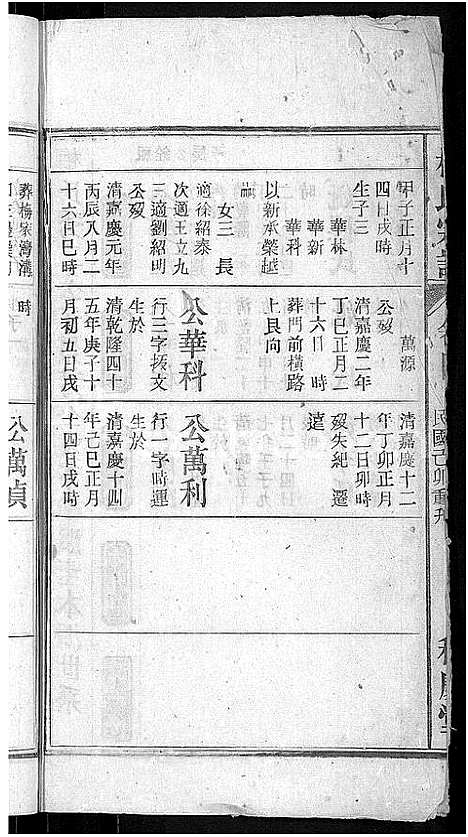 甲子正月十
四日戌時
生子三
華林
華新
華科
以新承榮越
嗣
女三 長
適徐紹泰
次適王立九
三適劉紹明
公歿
清嘉慶元年
丙辰八月二
十六日巳時
萬源
公歿
清嘉慶二年
丁巳正月二
十六日 時
葬門前橫路
上艮向
公華科
行三字振文
生於
清乾隆四十
五年庚子十
月初五日戌
時
清嘉慶十二
年丁卯正月
十二日卯時
歿失紀 遷
遠
公萬利
行一字時運
生於
清嘉慶十四
年己巳正月
十四日戌時
公萬貞
葬楊家灣溝
民國己卯重刋